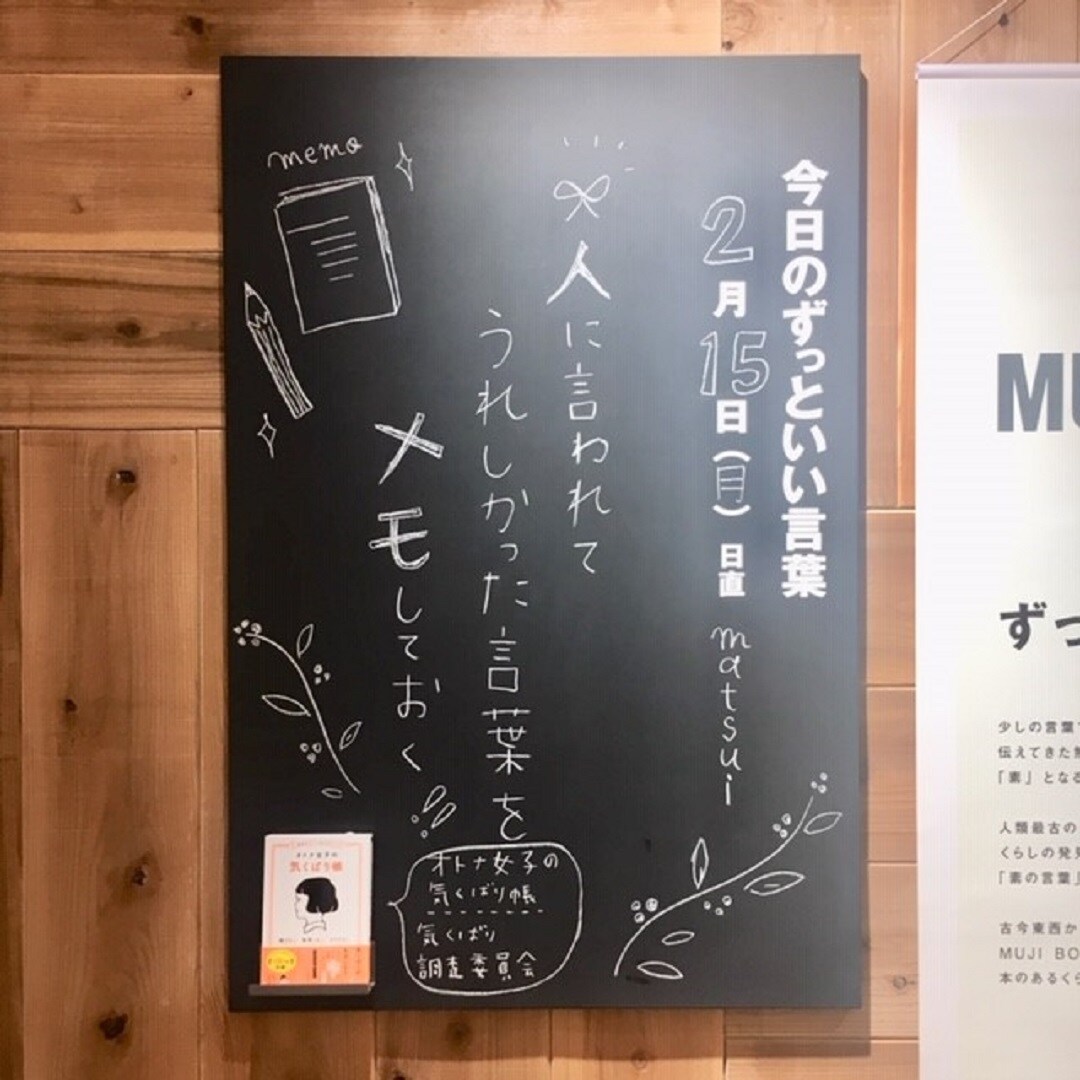 今日のずっといい言葉
2月15日(月) 日直 matsui
人に言われて
うれしかった言葉を
メモしておく
memo
オトナ女子の
気くばり帳
気くばり
調査委員会
オトナ女子の
気くばり帳
MU
ずっ
少しの言葉
伝えてきた
「素」となる
人類最古の
くらしの発見
「素の言葉」
古今東西か
MUJI BO
本のあるくら